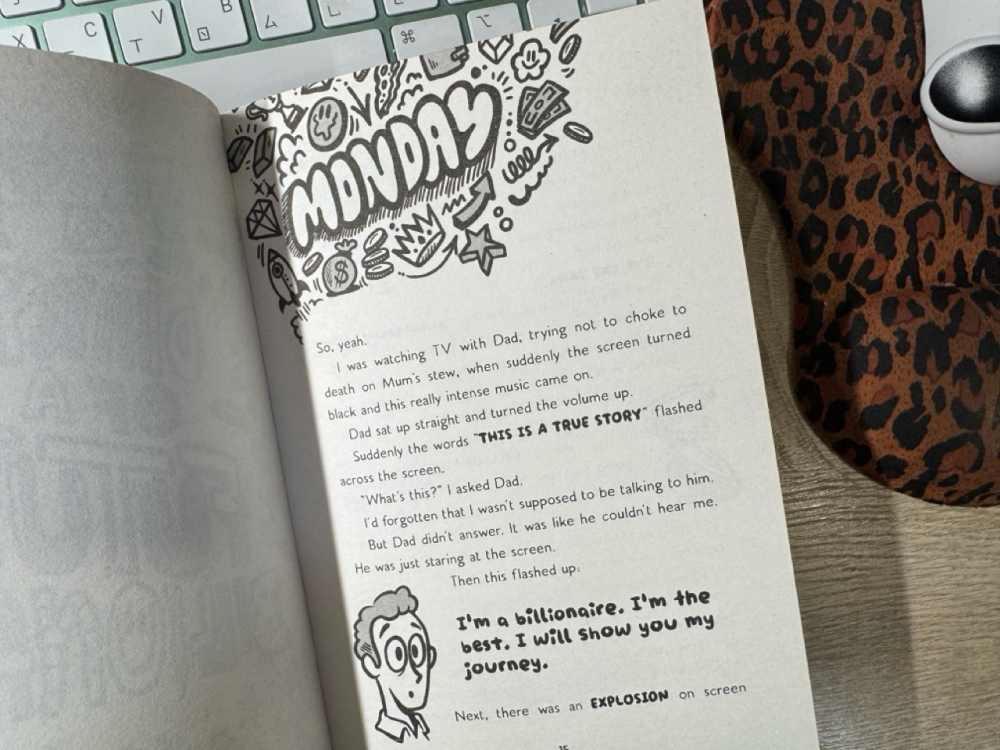 X
C
V
B
L
⌘
MONDAY
$
So, yeah.
I was watching TV with Dad, trying not to choke to
death on Mum's stew, when suddenly the screen turned
black and this really intense music came on.
Dad sat up straight and turned the volume up.
Suddenly the words "THIS IS A TRUE STORY" flashed
across the screen.
"What's this?" I asked Dad.
I'd forgotten that I wasn't supposed to be talking to him.
But Dad didn't answer. It was like he couldn't hear me.
He was just staring at the screen.
Then this flashed up:
I'm a billionaire. I'm the
best. I will show you my
journey.
Next, there was an EXPLOSION on screen